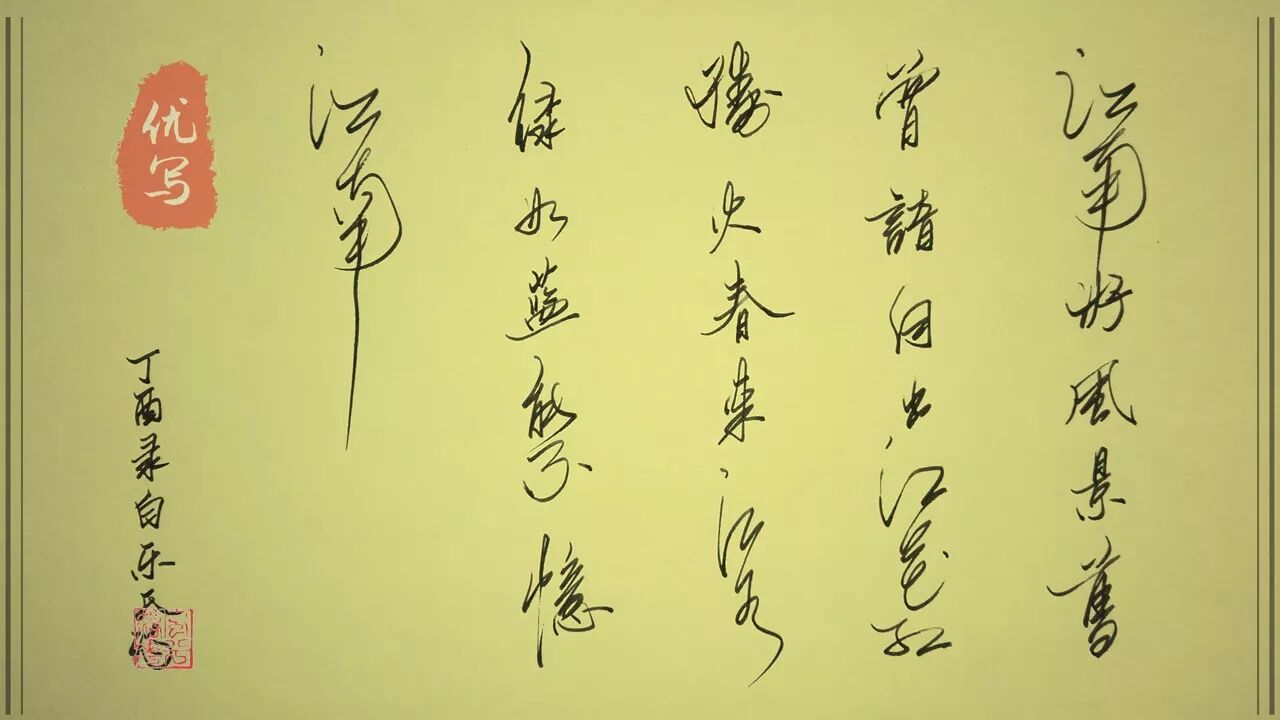 江南好風景舊
曾諳日出江花红
勝火春来江水
绿如藍能不憶
江南
丁酉录白乐天
优写